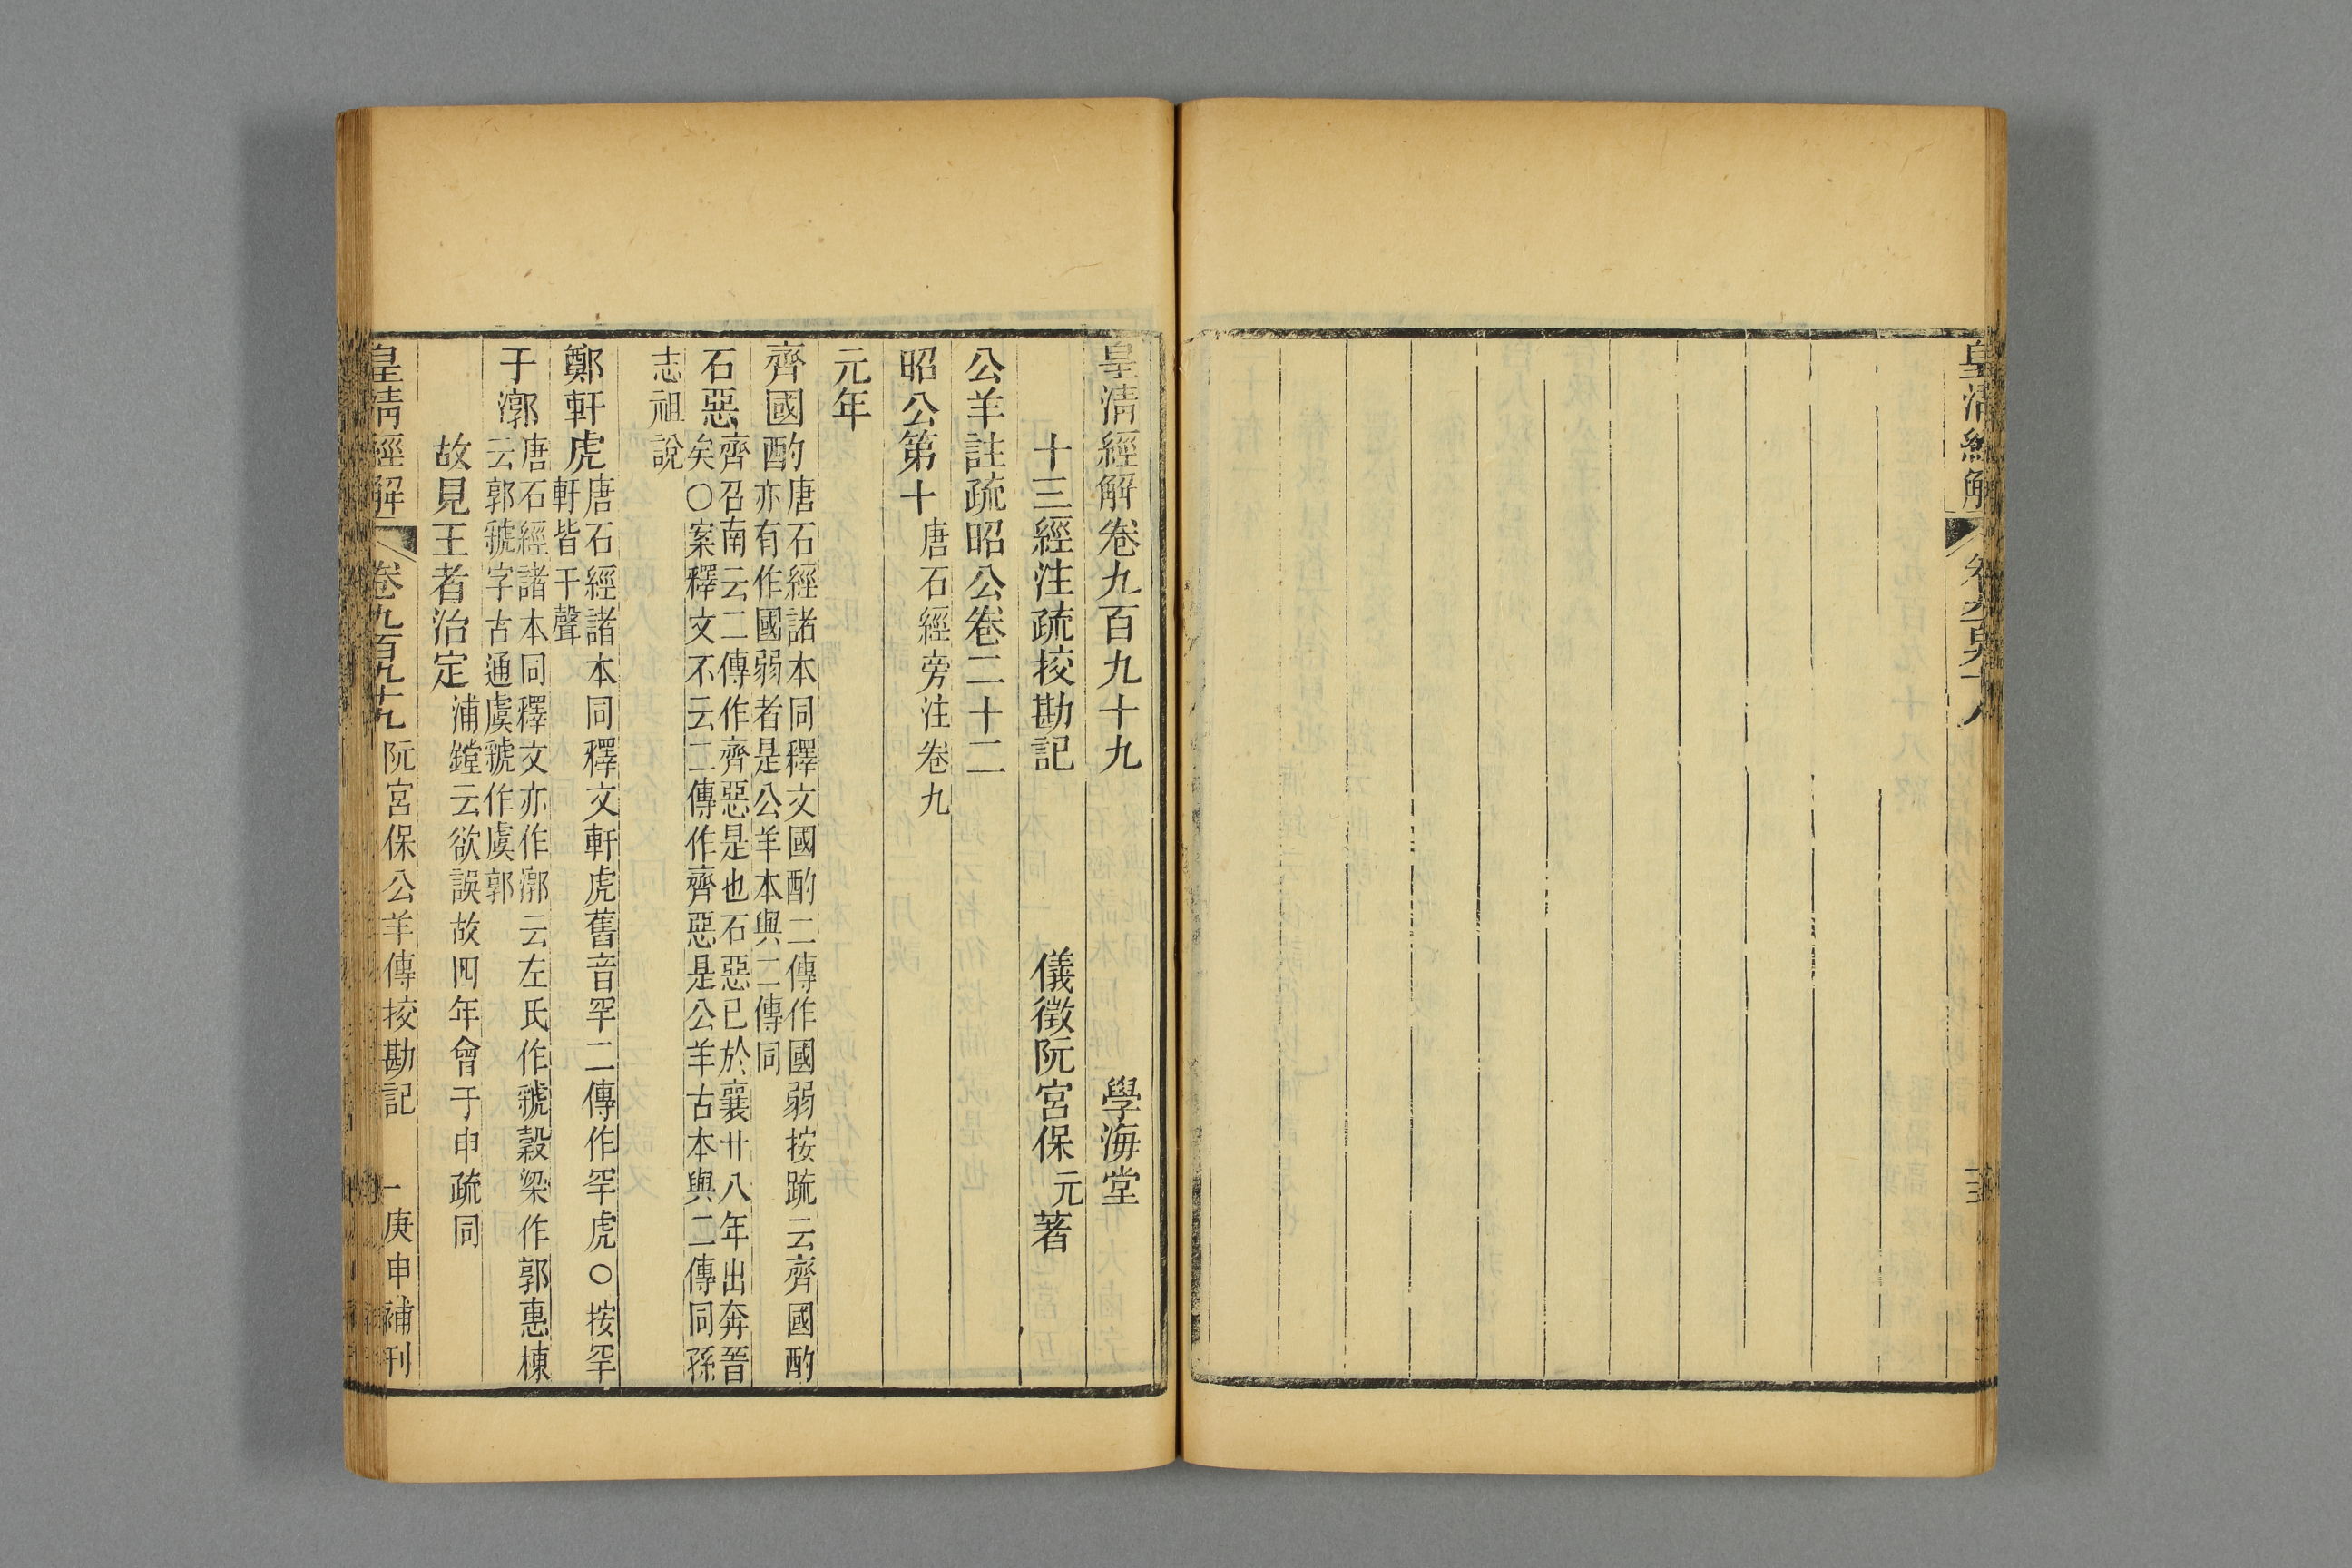 皇清經解
皇清經解卷九百九十九
學海堂
十三經注疏挍勘記
儀徵阮宮保元著
公羊註疏昭公卷二十二
昭公第十唐石經旁注卷九
元年
齊國酌唐石經諸本同釋文國酌二傳作國弱按疏云齊國酌
亦有作國弱者是公羊本與二傳同
石惡齊召南云二傳作齊惡是也石惡已於襄廿八年出奔晉
矣○案釋文不云二傳作齊惡是公羊古本與二傳同孫
志祖說
鄭軒虎唐石經諸本同釋文軒虎舊音罕二傳作罕虎○按罕
軒皆干聲
于漷唐石經諸本同釋文亦作漷云左氏作虢穀梁作郭惠棟
云郭虢字古通虞虢作虞郭
故見王者治定浦鏜云欲誤故四年會于申疏同
皇清經解
卷九百九十九
阮宮保公羊傳挍勘記
一
庚申補刊